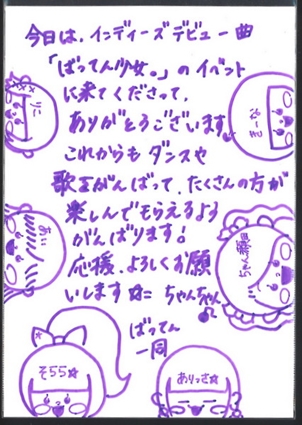 今日は、インディーズデビュー曲
「ばってん少女。」のイベント
に来てくださって、
ありがとうございます♪
これからもダンスや
歌をがんばって、たくさんの方が
楽しんでもらえるよう
がんばります!
応援、よろしくお願
いします☆ニ ちゃんちゃん♪
ばってん
一同
りこ
あい
そらら☆
ありっさ☆